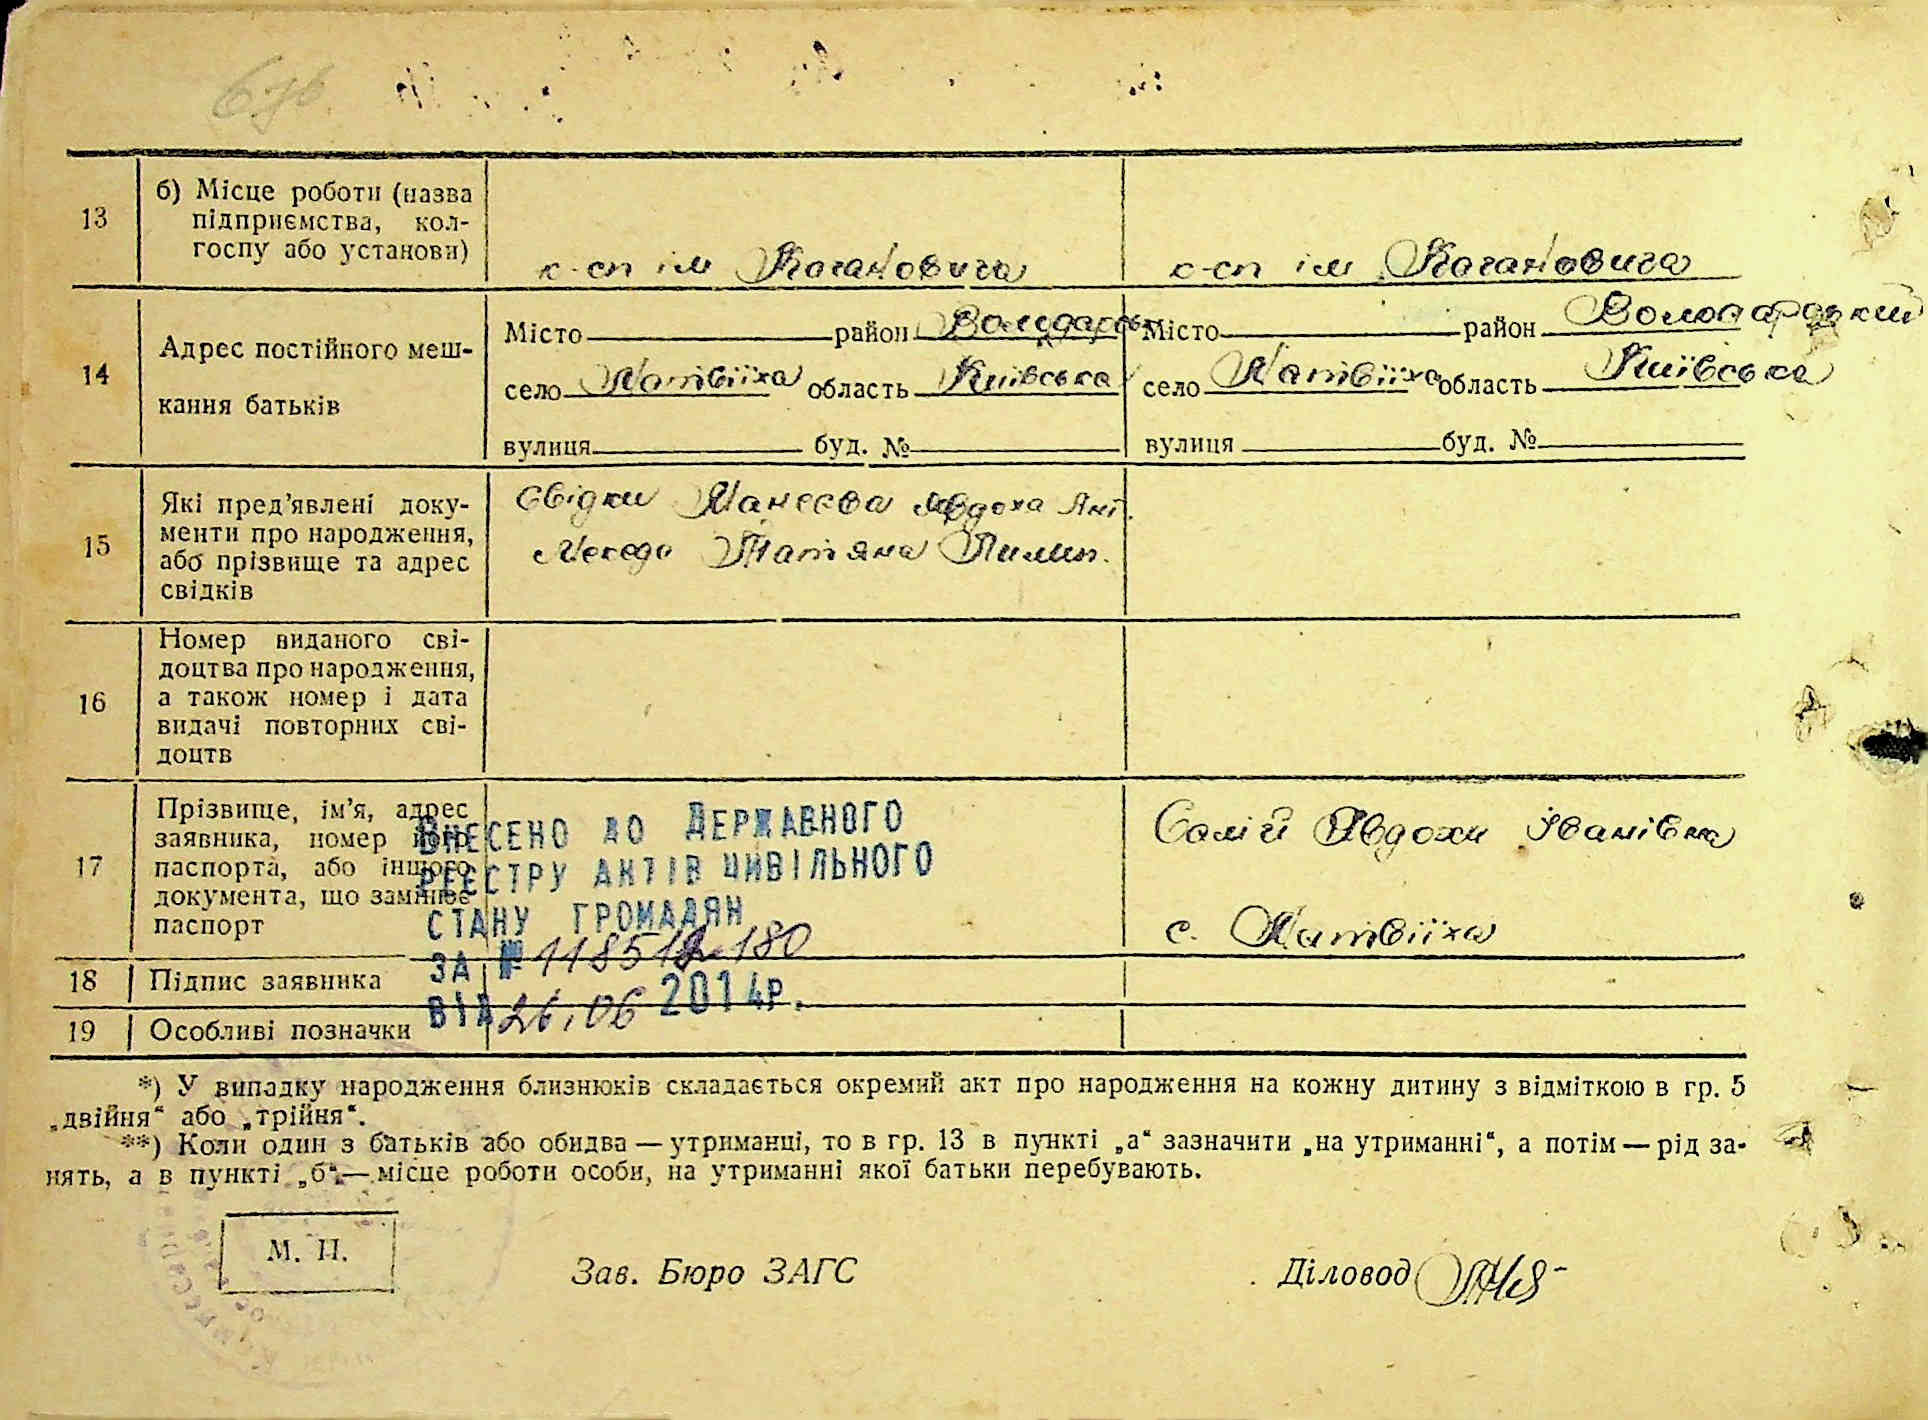 13
б) Місце роботи (назва
підприємства, кол-
госпу або установи)
к-сп ім Кагановича
к-сп ім Кагановича
14
Адрес постійного меш-
кання батьків
Місто район Володарськ
село Матвіїха область Київська
вулиця буд. №
Місто район Володарський
село Матвіїха область Київська
вулиця буд. №
15
Які пред’явлені доку-
менти про народження,
або прізвище та адрес
свідків
Свідки Явдоха Ант.
Татяна Пилип.
16
Номер виданого сві-
доцтва про народження,
а також номер і дата
видачі повторних сві-
доцтв
17
Прізвище, ім’я, адрес
заявника, номер його
паспорта, або іншого
документа, що замінює
паспорт
Салій Явдохи Іванівна
с. Матвіїха
ВНЕСЕНО ДО ДЕРЖАВНОГО
РЕЄСТРУ АКТІВ ЦИВІЛЬНОГО
СТАНУ ГРОМАДЯН
ЗА №
ВІД 26.06 2014р.
18 Підпис заявника
19 Особливі позначки
*) У випадку народження близнюків складається окремий акт про народження на кожну дитину з відміткою в гр. 5
„двійня“ або „трійня“.
**) Коли один з батьків або обидва — утриманці, то в гр. 13 в пункті „а“ зазначити „на утриманні“, а потім — рід за-
нять, а в пункті „б“ — місце роботи особи, на утриманні якої батьки перебувають.
М. П.
Зав. Бюро ЗАГС
Діловод